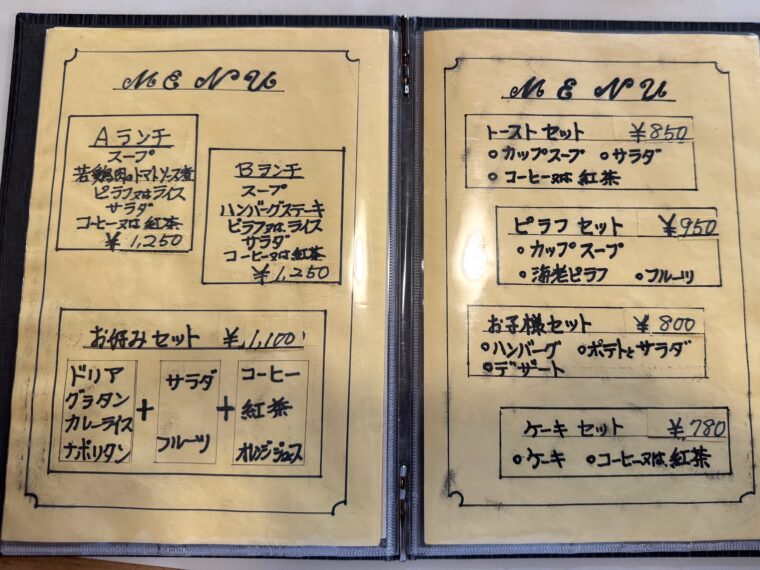 MENU
Aランチ
スープ
若鶏肉のトマトソース煮
ピラフ又はライス
サラダ
コーヒー又は紅茶
¥1,250
Bランチ
スープ
ハンバーグステーキ
ピラフ又はライス
サラダ
コーヒー又は紅茶
¥1,250
お好みセット ¥1,100
ドリア
グラタン
カレーライス
ナポリタン
+
サラダ
フルーツ
+
コーヒー
紅茶
オレンジジュース
MENU
トーストセット ¥850
○カップスープ ○サラダ
○コーヒー又は紅茶
ピラフセット ¥950
○カップスープ
○海老ピラフ ○フルーツ
お子様セット ¥800
○ハンバーグ ○ポテトとサラダ
○デザート
ケーキセット ¥780
○ケーキ ○コーヒー又は紅茶